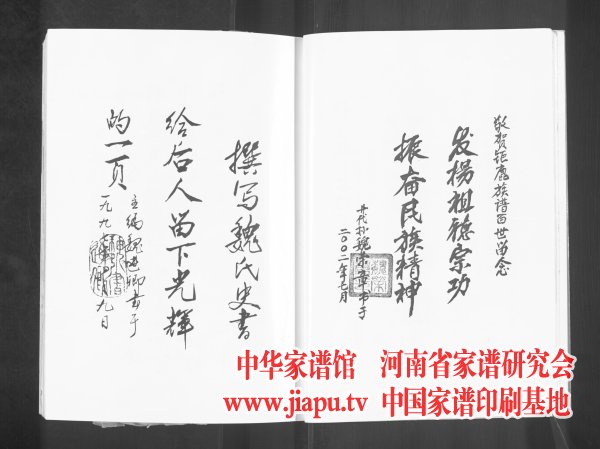 敬贺钜鹿族谱百世留念
发揚祖德宗功
振奋民族精神
二〇〇二年七月
撰写魏氏史書
给后人留下光輝
的一页
主编魏
一九九
九日
中华家谱馆 河南省家谱研究会
www.jiapu.tv 中国家谱印刷基地